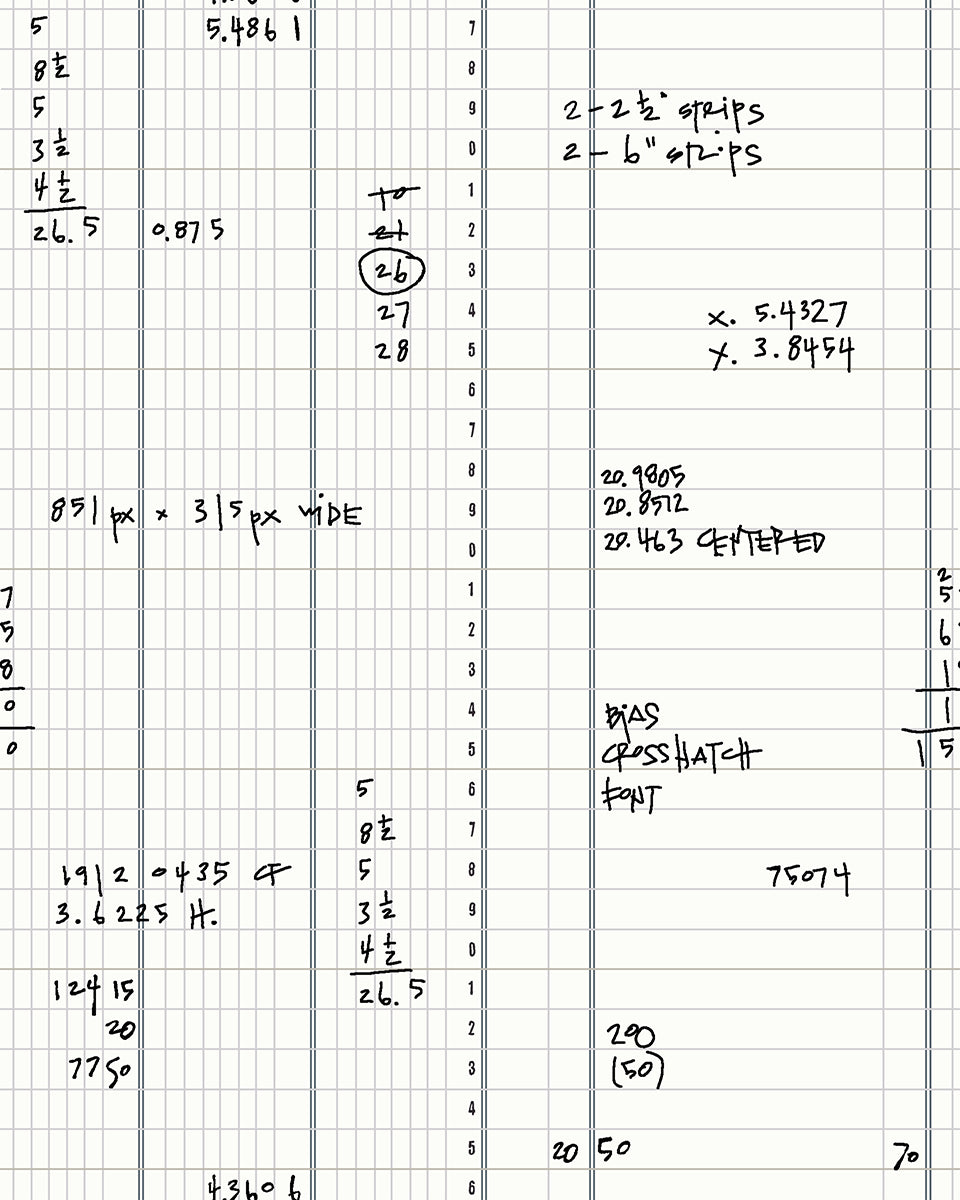 5
8 1/2
5
3 1/2
4 1/2
26.5 0.875
5.4861
7
8
9
0
1
2
3
4
5
6
7
8
9
0
1
2
3
4
5
6
7
8
9
0
1
2
3
4
5
6
2 - 2 1/2" strips
2 - 6" strips
10
21
26
27
28
x. 5.4327
y. 3.8454
851 px x 315 px WIDE
20.9805
20.8512
20.463 CENTERED
7
5
8
0
0
2
5
6
1
1
15
BIAS
CROSSHATCH
FONT
5
8 1/2
5
3 1/2
4 1/2
26.5
1912 0435 CF
3.6225 H.
75074
124 15
20
7750
200
(50)
20 50 70
4.3606